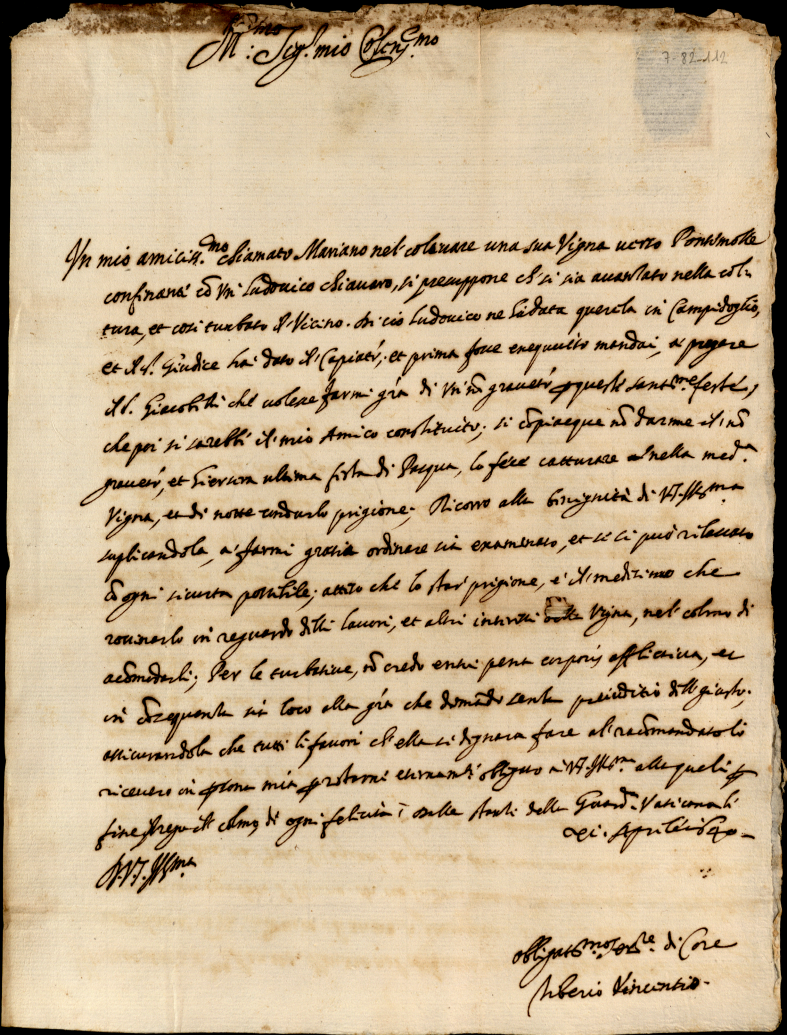 Ill.mo Sig.r mio Col.mo
7-82-112
Un mio amiciss.mo chiamato Mariano nel coltivare una sua Vigna verso Pontemolle
confinante cō un Ludovico chiavaro, si presuppone ch si sia avanzato nella col-
tura, et cosi turbato il Vicino. Di ciò Ludovico ne hà data querela in Campidoglio,
et il S.r Giudice hà dato il Capiatr, et prima fosse esequuito mandai, à pregare
il S. Giacobetti che volesse farmi gr̃a di un nō gravetr queste sant.me feste,
che poi si sarebbe il mio Amico constituito; si cōpiacque nō darme il nō
gravetr, et hiersera ultima festa di Pasqua, lo fece catturare nella med.a
Vigna, et di notte condurlo prigione; Ricorro alla benignità di V.S. Ill.ma
suplicandola, à farmi gratia ordinare sia examinato, et se si può rilassato
cō ogni sicurtà possibile; atteso che lo star prigione, è il medesimo che
rovinarlo in reguardo delli lavori, et altri interessi della Vigna, nel colmo di
acōmodarli; Per le turbative, nō credo entri pena corporis afflictiva, et
in cōsequenza sia loco alla gr̃a che domādo senza preiuditio del giusto;
assicurandola che tutti li favori ch'ella si degnarà fare al racōmandato li
riceverò in psona mia p restarni eternamēte obligato à V.S. Ill.ma alla quale p
fine prego il colmo di ogni felicità. Dalle stanze della Guard.a Vaticana li
xi. Aprile 1640
D.V.S. Ill.ma
obligatiss.mo Ser.re di Core
Tiberio Vincentio.